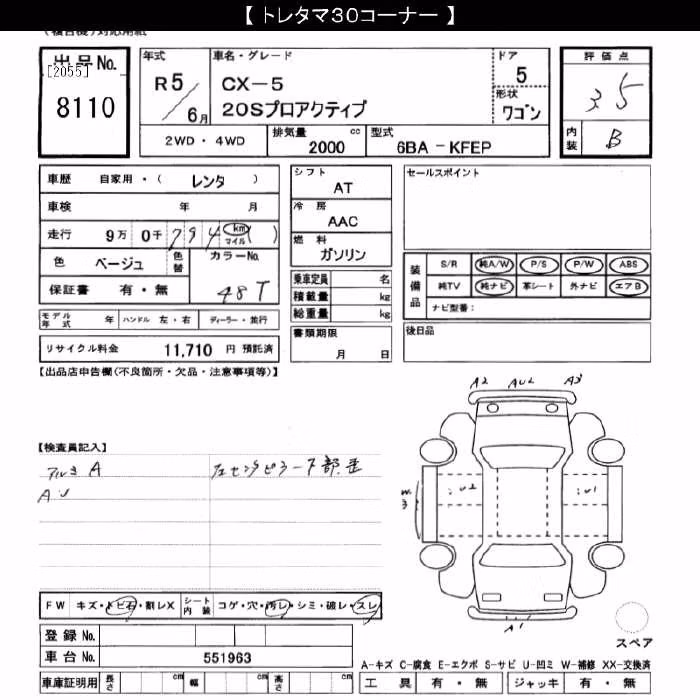 【 トレタマ30コーナー 】
出品No.
[2055]
8110
年式
R5
6月
車名・グレード
CX-5
20Sプロアクティブ
ドア
5
形状
ワゴン
評価点
3.5
内装
B
2WD ・ 4WD
排気量
2000 cc
型式
6BA - KFEP
車歴 自家用・( レンタ )
車検 年 月
走行 9万 0千 794 ( km マイル )
色 ベージュ
色替
カラーNo.
48T
保証書 有・無
モデル年式 年 ハンドル 左・右 ディーラー・並行
リサイクル料金 11,710 円 預託済
シフト
AT
冷房
AAC
燃料
ガソリン
乗車定員 名
積載量 kg
総重量 kg
書類期限
月 日
セールスポイント
装備品
S/R 純A/W P/S P/W ABS
純TV 純ナビ 革シート 外ナビ エアB
ナビ型番:
後日品
【出品店申告欄(不良箇所・欠品・注意事項等)】
【検査員記入】
アルミ A
AU
A2 AU2 A3
U2
U1
W3
A1
スペア
FW キズ・トビ石・割レX
シート内装 コゲ・穴・汚レ・シミ・破レ・スレ
登録No.
車台No. 551963
車庫証明用 長さ cm 幅 cm 高さ cm
A-キズ C-腐食 E-エクボ S-サビ U-凹ミ W-補修 XX-交換済
工具 有・無 ジャッキ 有・無